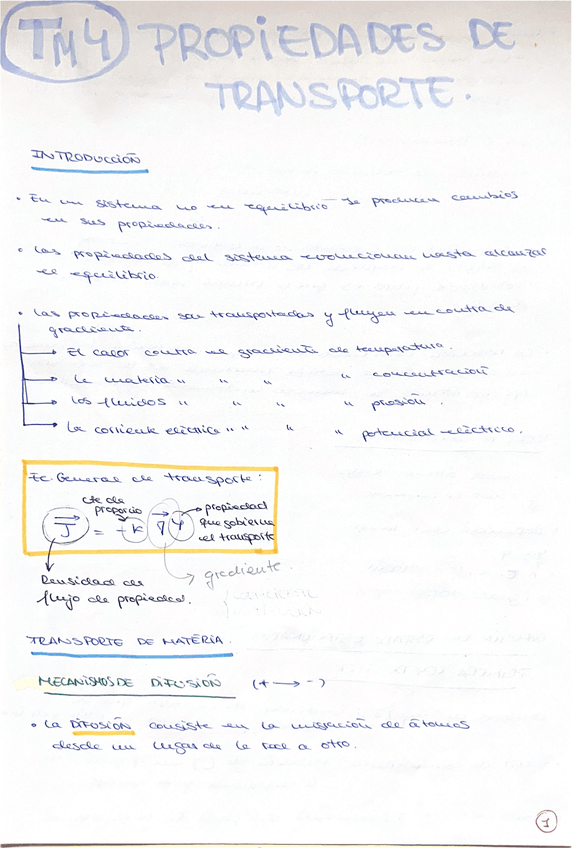 TM4 PROPIEDADES DE
TRANSPORTE.
INTRODUCCIÓN
• En un sistema no en equilibrio se producen cambios
en sus propiedades.
• Las propiedades del sistema evolucionan hasta alcanzar
el equilibrio.
• Las propiedades son transportadas y fluyen en contra de
gradiente.
→ El calor contra un gradiente de temperatura.
→ La materia " " " " concentración
→ Los fluidos " " " " presión.
→ La corriente eléctrica " " " " potencial eléctrico.
Ec. General de transporte:
cte de
proporcio
propiedad
que gobierna
el transporte
J = -K ∇φ
gradiente.
Densidad de
flujo de propiedad.
TRANSPORTE DE MATERIA.
MECANISMOS DE DIFUSIÓN (+ → -)
• La DIFUSIÓN consiste en la migración de átomos
desde un lugar de la red a otro.
1